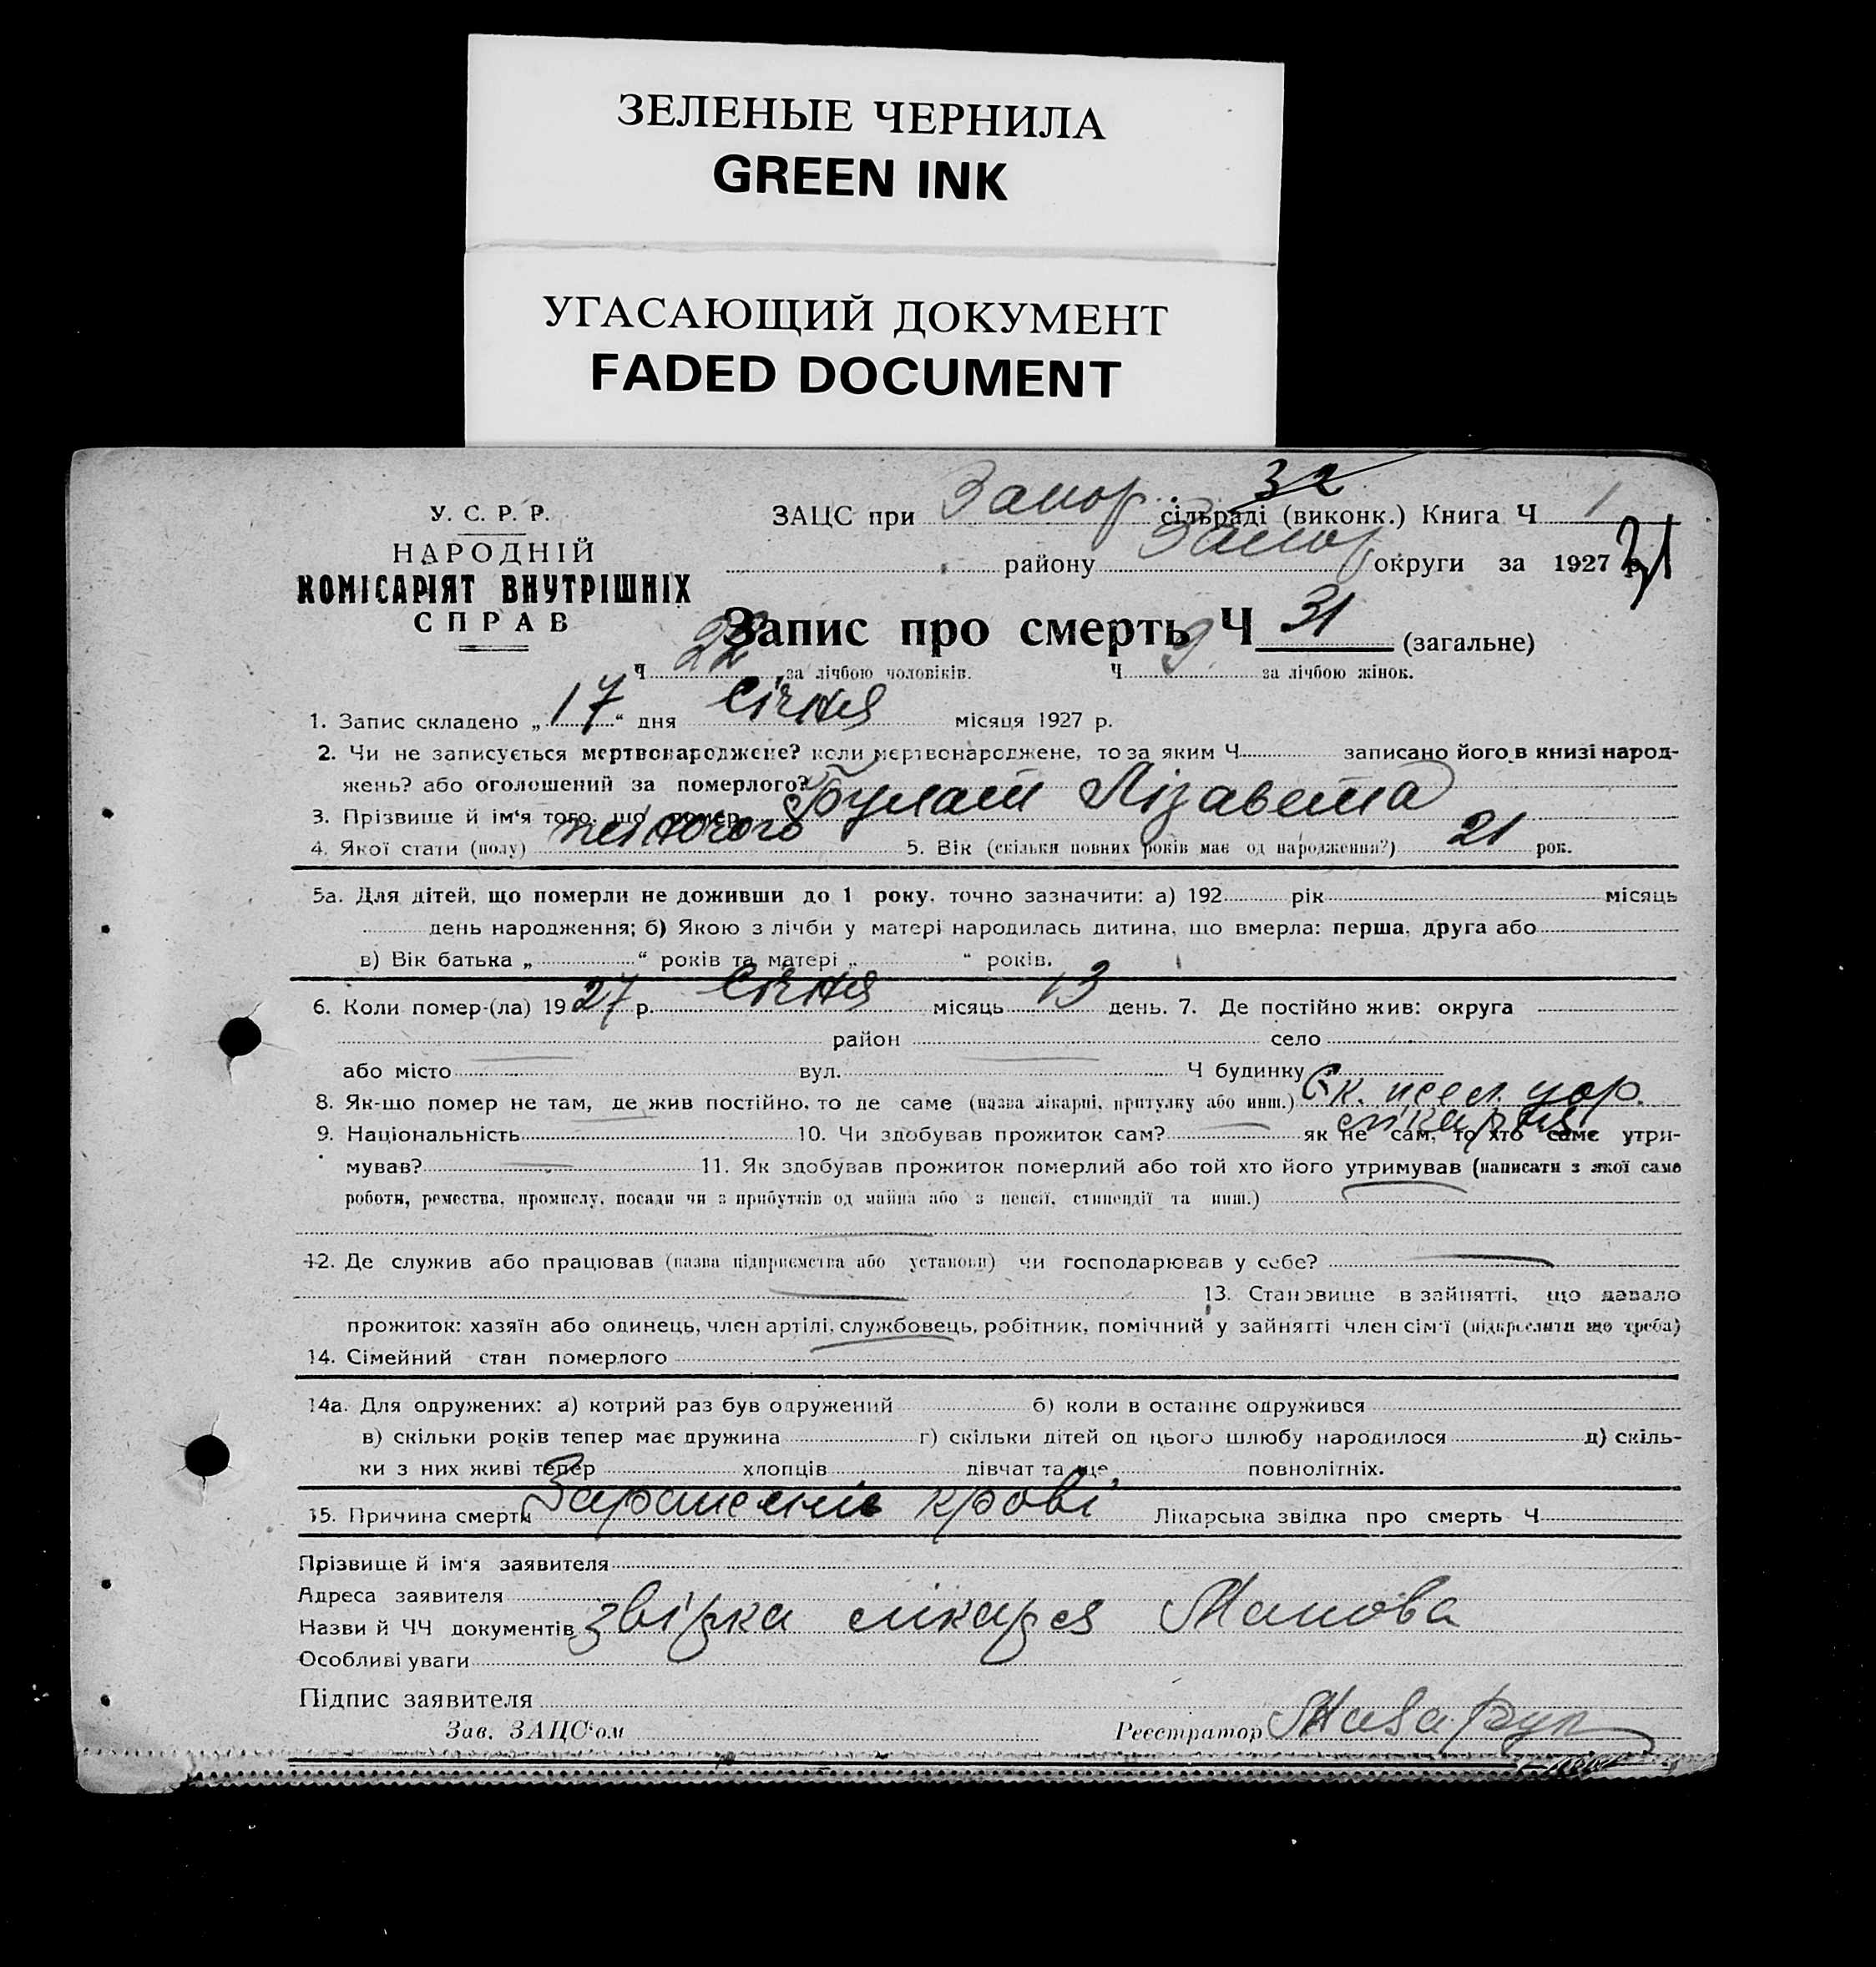 ЗЕЛЕНЫЕ ЧЕРНИЛА
GREEN INK
УГАСАЮЩИЙ ДОКУМЕНТ
FADED DOCUMENT
У. С. Р. Р.
НАРОДНІЙ
КОМІСАРІЯТ ВНУТРІШНІХ
СПРАВ
32
ЗАЦС при Запор. сільраді (виконк.) Книга Ч 1
району Запор округи за 1927 р.
31
Запис про смерть Ч 31 (загальне)
Ч 22 за лічбою чоловіків. Ч 9 за лічбою жінок.
1. Запис складено „17“ дня Січня місяця 1927 р.
2. Чи не записується мертвонароджене? коли мертвонароджене, то за яким Ч записано його в книзі народ-
жень? або оголошений за померлого?
3. Прізвище й ім'я того, що помер Булат Лізавета
4. Якої стати (полу) жіночого 5. Вік (скільки повних років має од народження?) 21 рок.
5а. Для дітей, що померли не доживши до 1 року, точно зазначити: а) 192 рік місяць
день народження; б) Якою з лічби у матері народилась дитина, що вмерла: перша, друга або
в) Вік батька „ “ років та матері „ “ років.
6. Коли помер-(ла) 1927 р. Січня місяць 13 день. 7. Де постійно жив: округа
район село
або місто вул. Ч будинку
8. Як-що помер не там, де жив постійно, то де саме (назва лікарні, притулку або инш.)
лікарня
9. Національність 10. Чи здобував прожиток сам? як не сам, то хто саме утри-
мував? 11. Як здобував прожиток померлий або той хто його утримував (написати з якої саме
роботи, ремества, промислу, посади чи з прибутків од майна або з пенсії, стипендії та инш.)
12. Де служив або працював (назва підприємства або установи) чи господарював у себе?
13. Становище в зайнятті, що давало
прожиток: хазяїн або одинець, член артілі, службовець, робітник, помічний у зайнятті член сім'ї (підкреслити що треба)
14. Сімейний стан померлого
14а. Для одружених: а) котрий раз був одружений б) коли в останнє одружився
в) скільки років тепер має дружина г) скільки дітей од цього шлюбу народилося д) скіль-
ки з них живі тепер хлопців дівчат та ще повнолітніх.
15. Причина смерти Зараженнів крові Лікарська звідка про смерть Ч
Прізвище й ім'я заявителя
Адреса заявителя
Назви й ЧЧ документів звідка лікаря
Особливі уваги
Підпис заявителя
Зав. ЗАЦС'ом Реєстратор